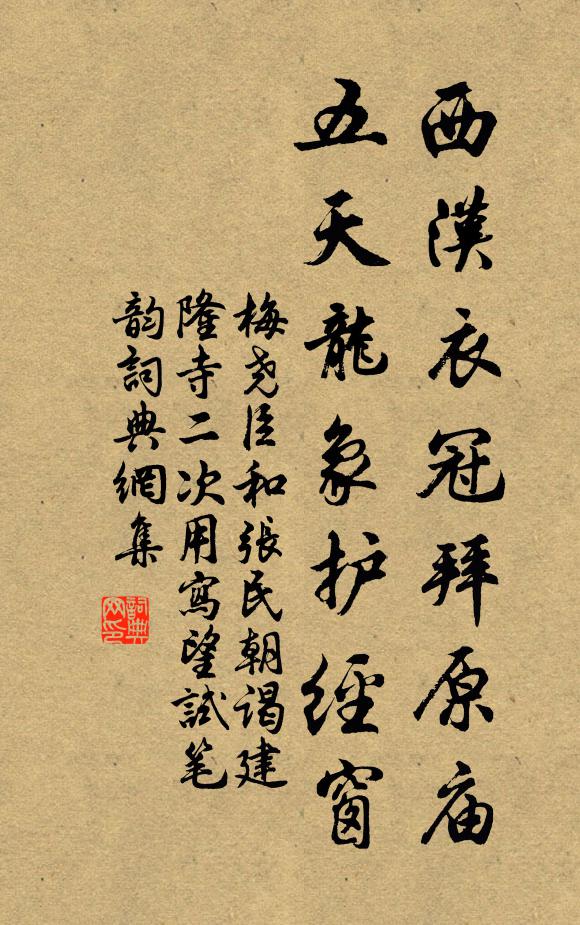 西漢衣冠拜原庙
五天龍象护經窗
梅尧臣和張民朝谒建
隆寺二次用寫望試笔
韵詞典網集
詞典
网印